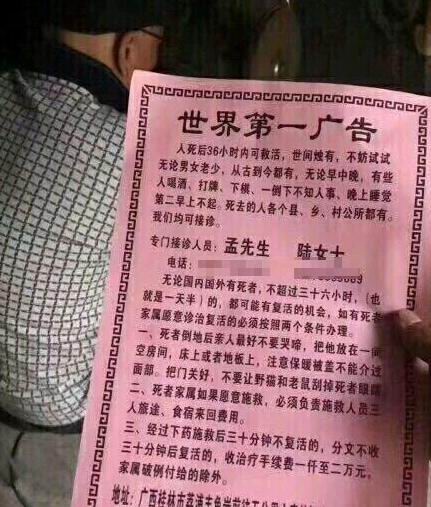 世界第一广告
人死后36小时内可救活，世间烛有，不妨试试
无论男女老少，从古到今都有，无论早中晚，有些
人喝酒、打牌、下棋、一倒下不知人事、晚上睡觉
第二早上不起。死去的人各个县、乡、村公所都有。
我们均可接诊。
专门接诊人员：孟先生 陆女士
电话：
无论国内国外有死者，不超过三十六小时，（也
就是一天半）的，都可能有复活的机会，如有死者
家属愿意诊治复活的必须按照两个条件办理。
一、死者倒地后亲人最好不要哭啼，把他放在一间
空房间，床上或者地板上，注意保暖被盖不能介过
面部。把门关好，不要让野猫和老鼠刮掉死者眼睛
二、死者家属如果愿意施救，必须负责施救人员三
人旅途、食宿来回费用。
三、经过下药施救后三十分钟不复活的，分文不收
三十分钟后复活的，收治疗手续费一仟至二万元。
家属破例付给的除外。
地址：广西桂林市荔浦